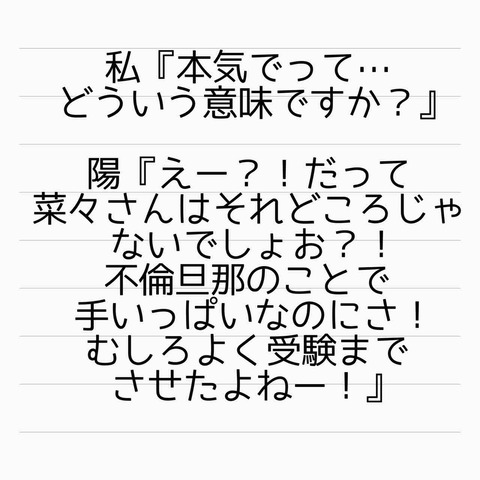 私『本気でって…
どういう意味ですか？』
陽『えー？！だって
菜々さんはそれどころじゃ
ないでしょお？！
不倫旦那のことで
手いっぱいなのにさ！
むしろよく受験まで
させたよねー！』